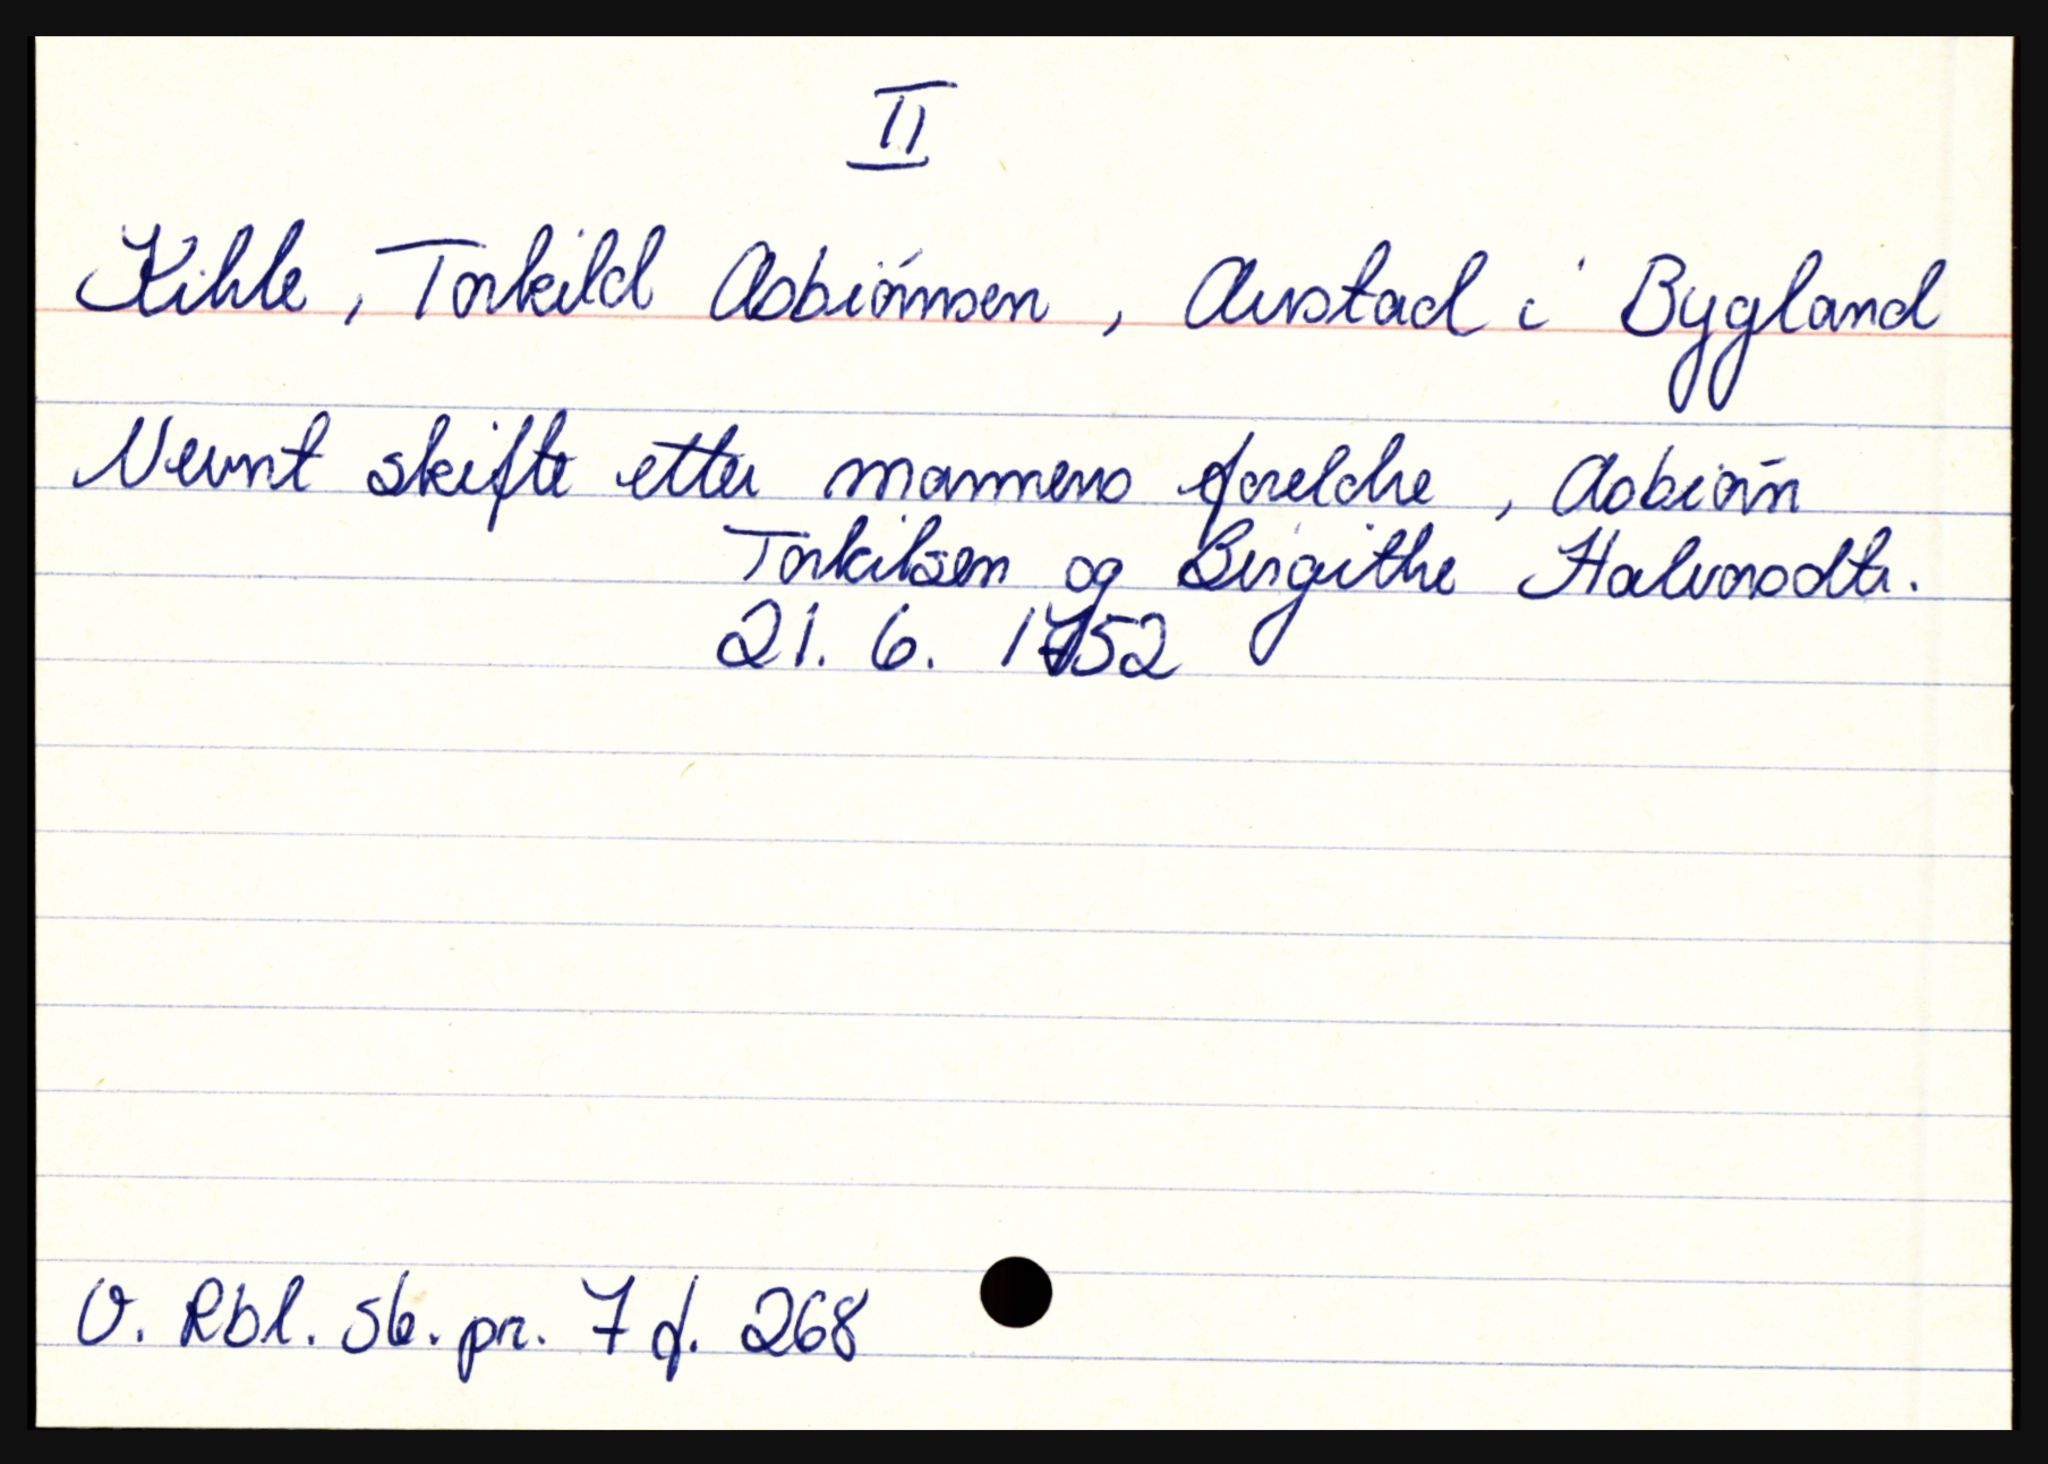 II
Kihle, Torkild Asbiörnsen, Austad i Bygland
Nevnt skifte etter mannens foreldre, Asbiörn
Torkilsen og Birgithe Halvorsdtr.
21. 6. 1752
V. Rbl. sk. pr. 7 f. 268